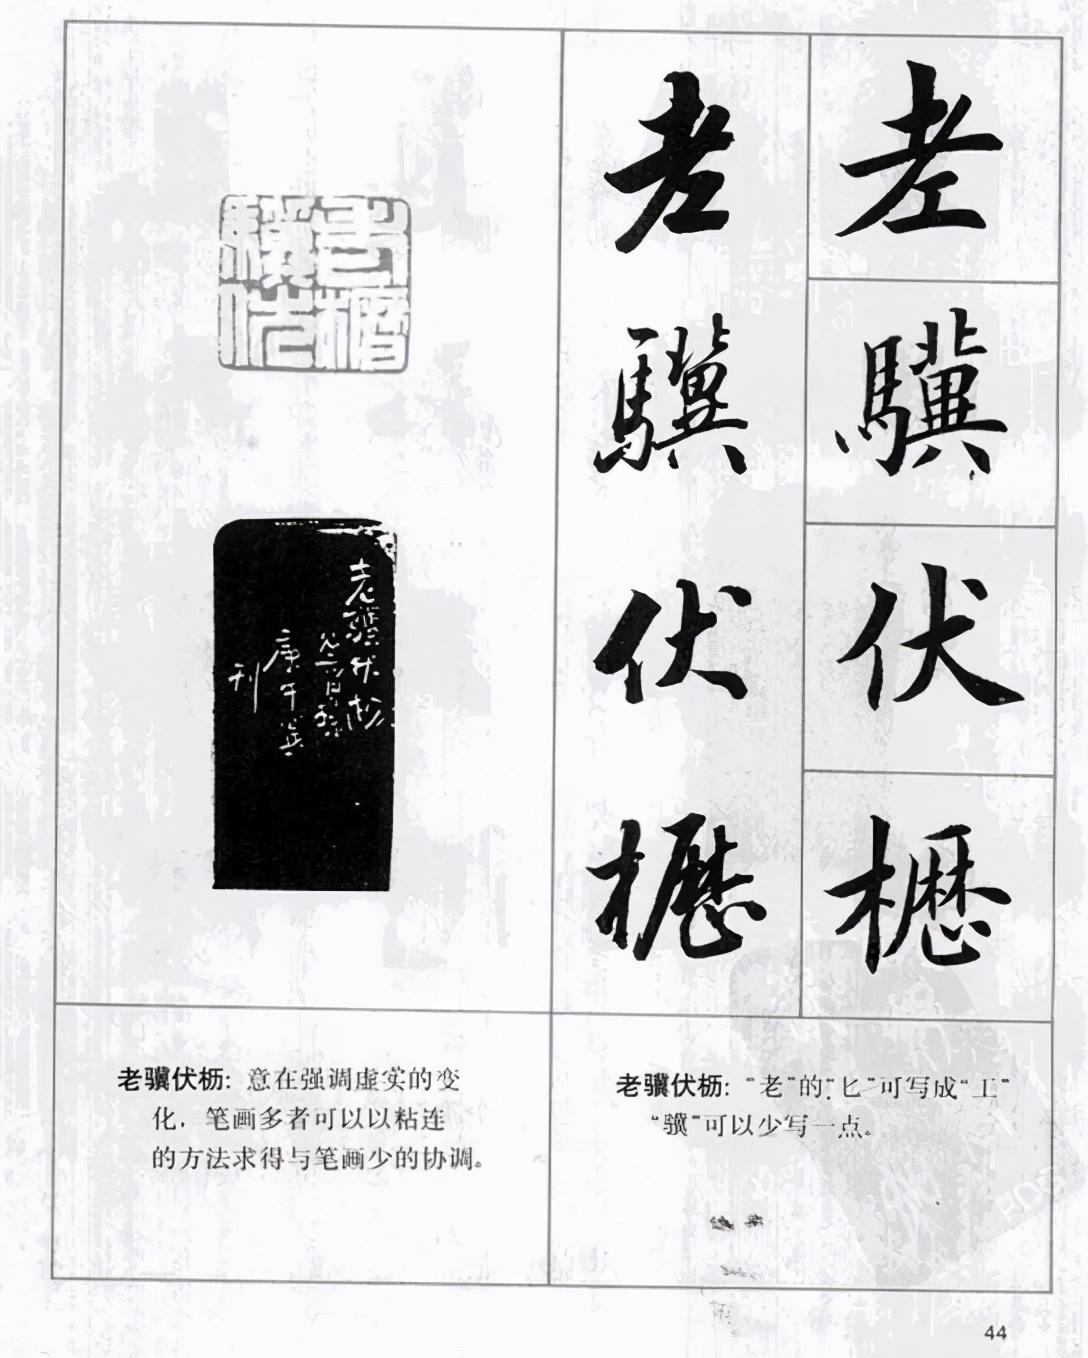 老驥伏櫪
老驥伏櫪
老驥伏櫪
老驥伏櫪
刊
老骥伏枥：意在强调虚实的变
化，笔画多者可以以粘连
的方法求得与笔画少的协调。
老骥伏枥：“老”的“匕”可写成“工”
“骥”可以少写一点。
44